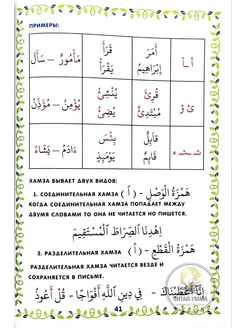 ПРИМЕРЫ:
أ ـأ
أَمَرَ
إِبْرَاهِيمُ
قَرَأَ
يَقْرَأُ
مَأْمُورٌ – سَأَلَ
ئ ؤ
قُرِئَ
يُؤْمِنُ – مُؤَذِّنُ
قَابِلٌ
قَائِمٌ
بِئْسَ
يَوْمَئِذٍ
ءَادَمُ – يَشَاءُ
ХАМЗА БЫВАЕТ ДВУХ ВИДОВ:
1. СОЕДИНИТЕЛЬНАЯ ХАМЗА (أ) – هَمْزَةُ الْوَصْلِ
КОГДА СОЕДИНИТЕЛЬНАЯ ХАМЗА ПОПАДАЕТ МЕЖДУ
ДВУМЯ СЛОВАМИ ТО ОНА НЕ ЧИТАЕТСЯ НО ПИШЕТСЯ.
اِهْدِنَا الصِّرَاطَ الْمُسْتَقِيمَ
2. РАЗДЕЛИТЕЛЬНАЯ ХАМЗА – (أ) هَمْزَةُ الْقَطْعِ
РАЗДЕЛИТЕЛЬНАЯ ХАМЗА ЧИТАЕТСЯ ВЕЗДЕ И
СОХРАНЯЕТСЯ В ПИСЬМЕ.
إِنَّا أَعْطَيْنَاكَ – فِي دِينِ اللَّهِ أَفْوَاجًا – قُلْ أَعُوذُ
41